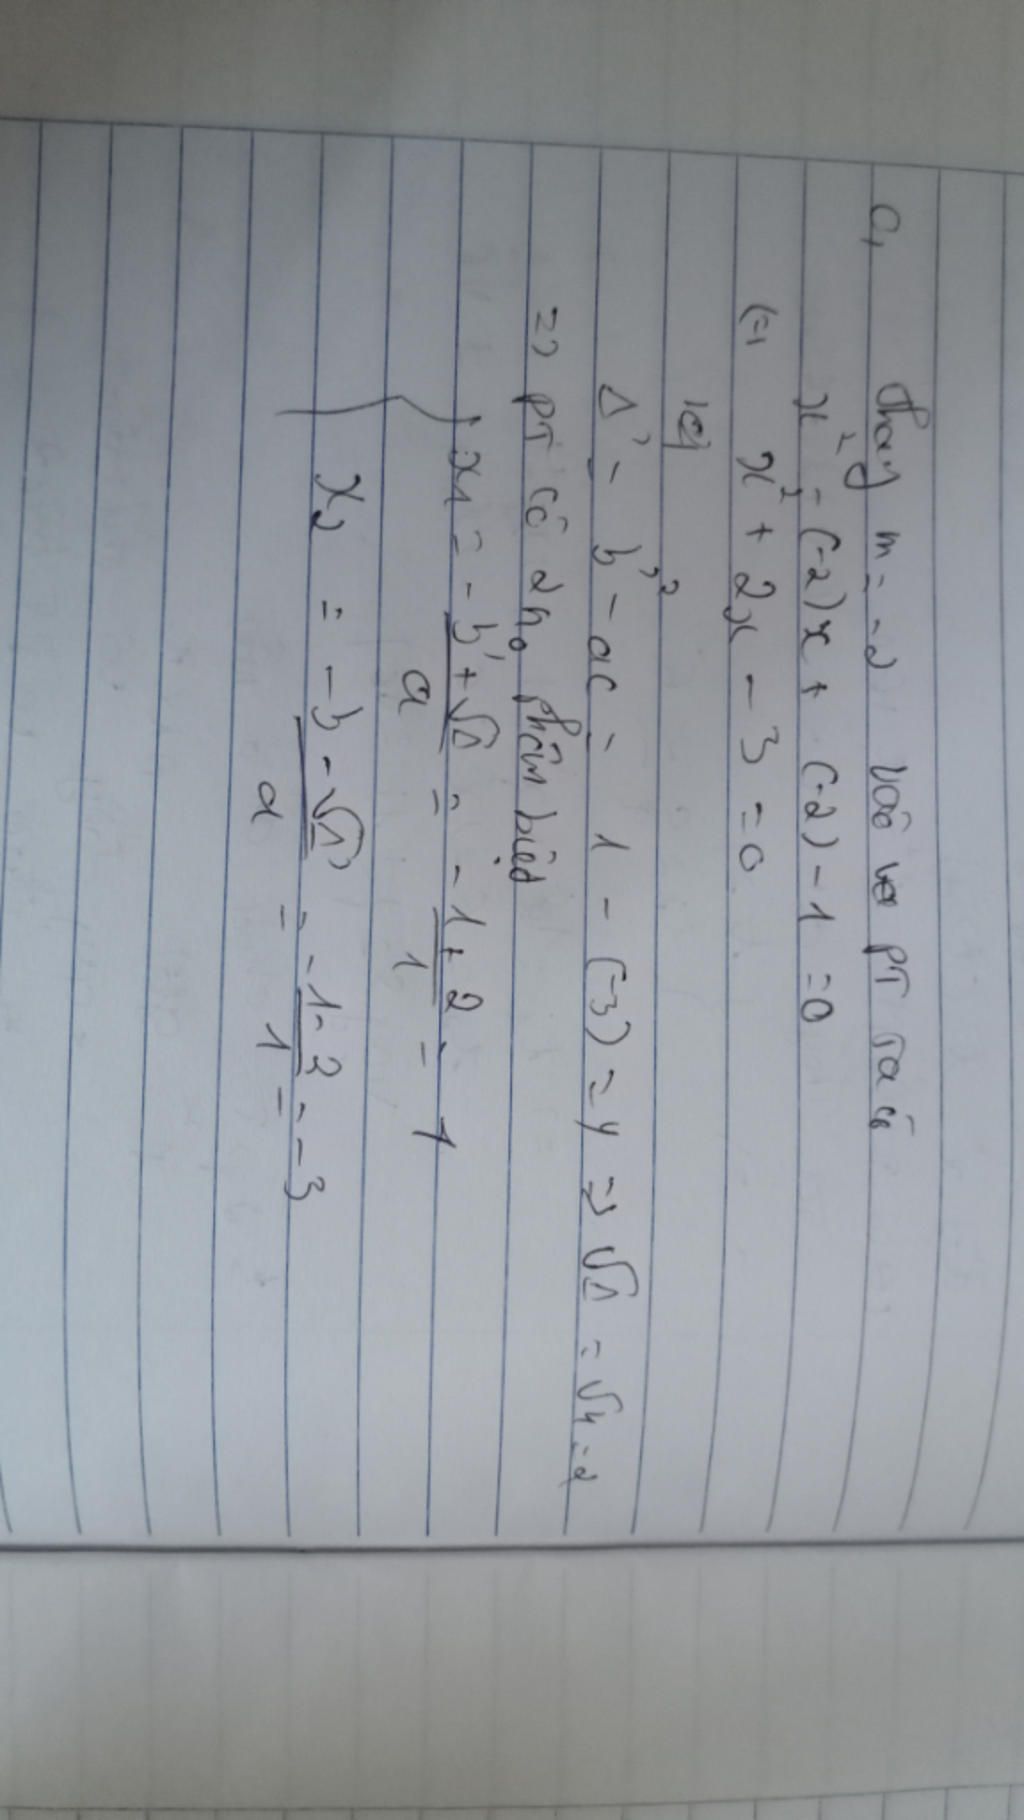 a, thay m = -2 vào PT ta có
x² - (-2)x + (-2) - 1 = 0
(=) x² + 2x - 3 = 0
Δ' = b'² - ac = 1 - (-3) = 4 => √Δ = √4 = 2
=> PT có 2 n₀ phân biệt
x₁ = -b' + √Δ / a = -1 + 2 / 1 = 1
x₂ = -b - √Δ' / a = -1 - 2 / 1 = -3